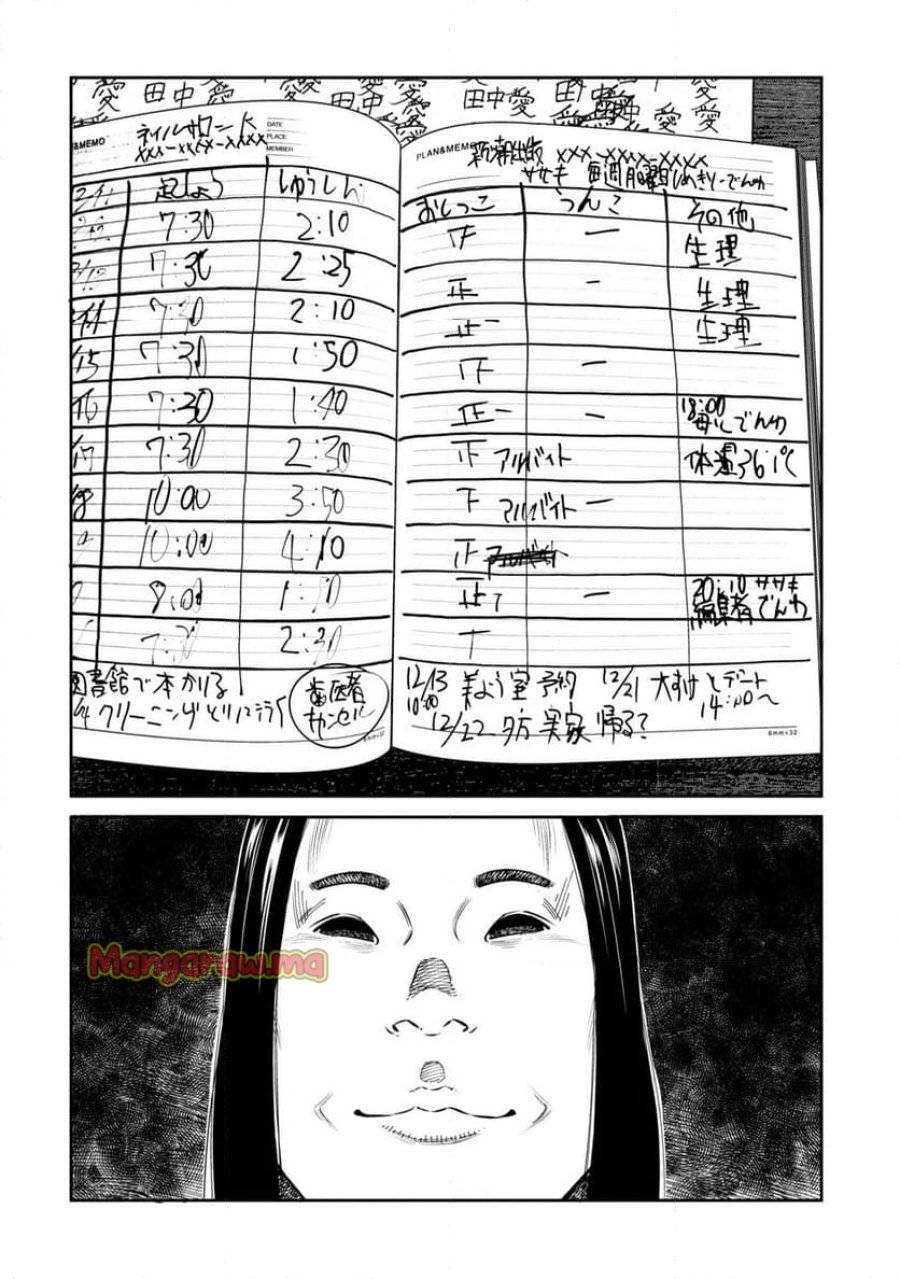 愛 田中愛 愛 田中愛 田中愛 田中愛 愛
&MEMO
ネイルサロン
xxx-xxxx-xxxx
DATE
PLACE
MEMBER
起しょう しゅうしん
7:30 2:10
7:30 2:25
7:30 2:10
15 7:30 1:50
16 7:30 1:40
17 7:30 2:30
18 10:00 3:50
10:00 4:10
8:00
7:30 2:30
図書館で本かりる
クリーニングとりにいく
歯医者
キャンセル
6mm×32
PLAN&MEMO
xxx-xxxx-xxxx
ササキ 毎週月曜日しめきり-でんわ
おしっこ うんこ その他
下 一 生理
正 一 生理
正一 生理
下 一
正一 一 18:00 母にでんわ
正 アルバイト 体温36.1℃
下 アルバイト 一
正
正丁 一 20:10 ササキ
編集者でんわ
丅
12/13 美よう室予約 12/21 大すけとデート
10:00 14:00〜
12/22 夕方 実家 帰る?
6mm×32
Mangaraw.ma